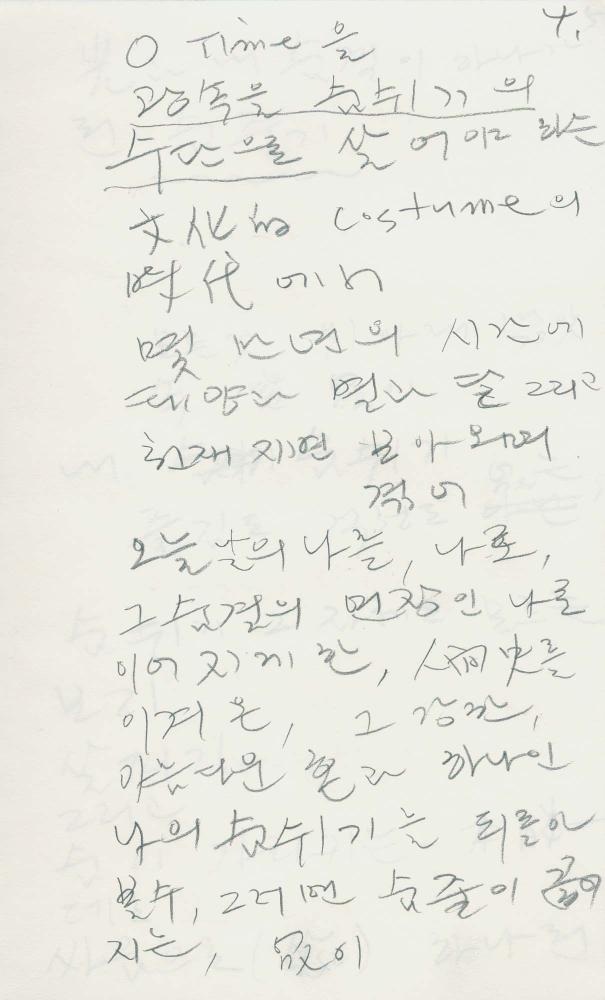 4.
O Time을
광속을 숨쉬기의
수단으로 살 어 이고 라는
文化的 costume의
時代에서
몇 만년의 시간에
태양과 별과 돌 그리고
천재지변 보아오며
겪어
오늘날의 나를, 나로,
그 숨결의 연장인 나로
이어지게 한, 人間史를
이겨온, 그 강한,
아름다운 혼과 하나인
나의 숨쉬기는 되돌아
볼수, 그러면 숨줄이 굵어
지는, 없이